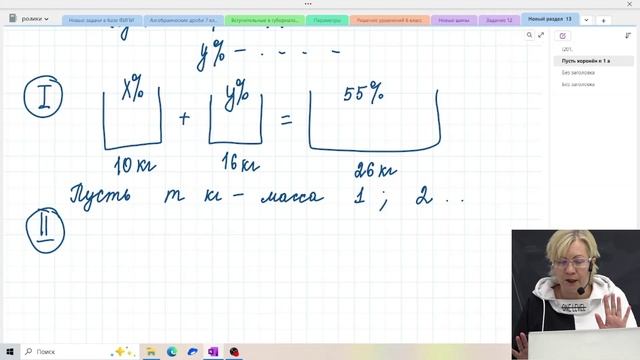 ролики
Новые задачи в базе ФИПИ
Алгебраические дроби 7 кл...
Вступительные в губернато...
Параметры
Решение уравнений 6 класс
Новые шипы
Задание 12
Новый раздел 13
y% - . . . . -
I
x%
y%
55%
+
=
10 кг
16 кг
26 кг
Пусть m кг - масса 1 ; 2 ..
II
Пусть хоронён n 1 а
Без заголовка
Без заголовка
ONE LEVEL
Поиск